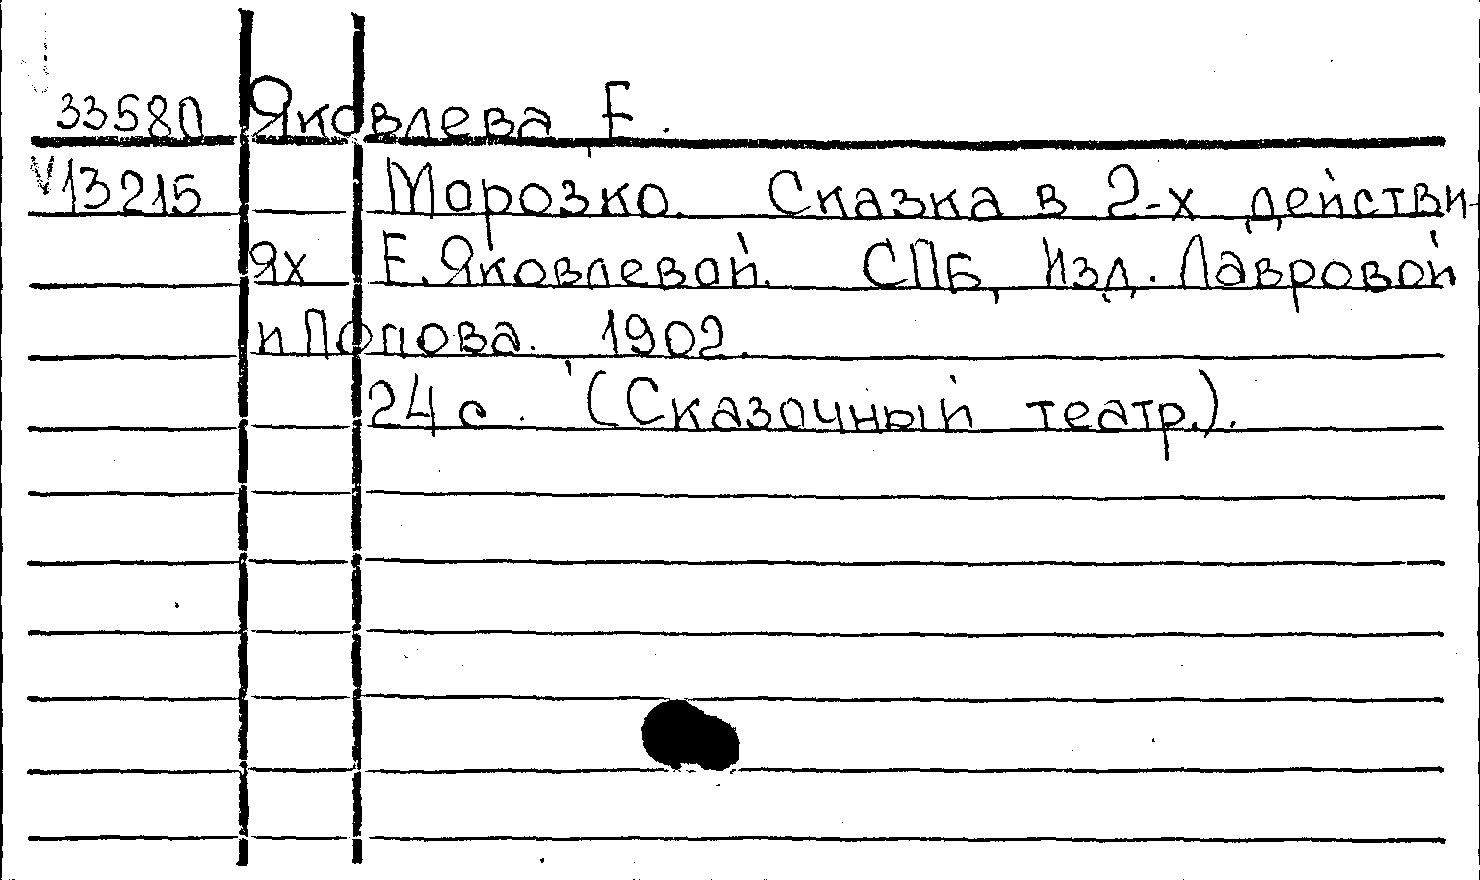 33580 Яковлева Е.
V13215 Морозко. Сказка в 2-х действи-
ях Е.Яковлевой. СПБ, Изд. Лавровой
и Попова. 1902.
24 с. (Сказочный театр.).